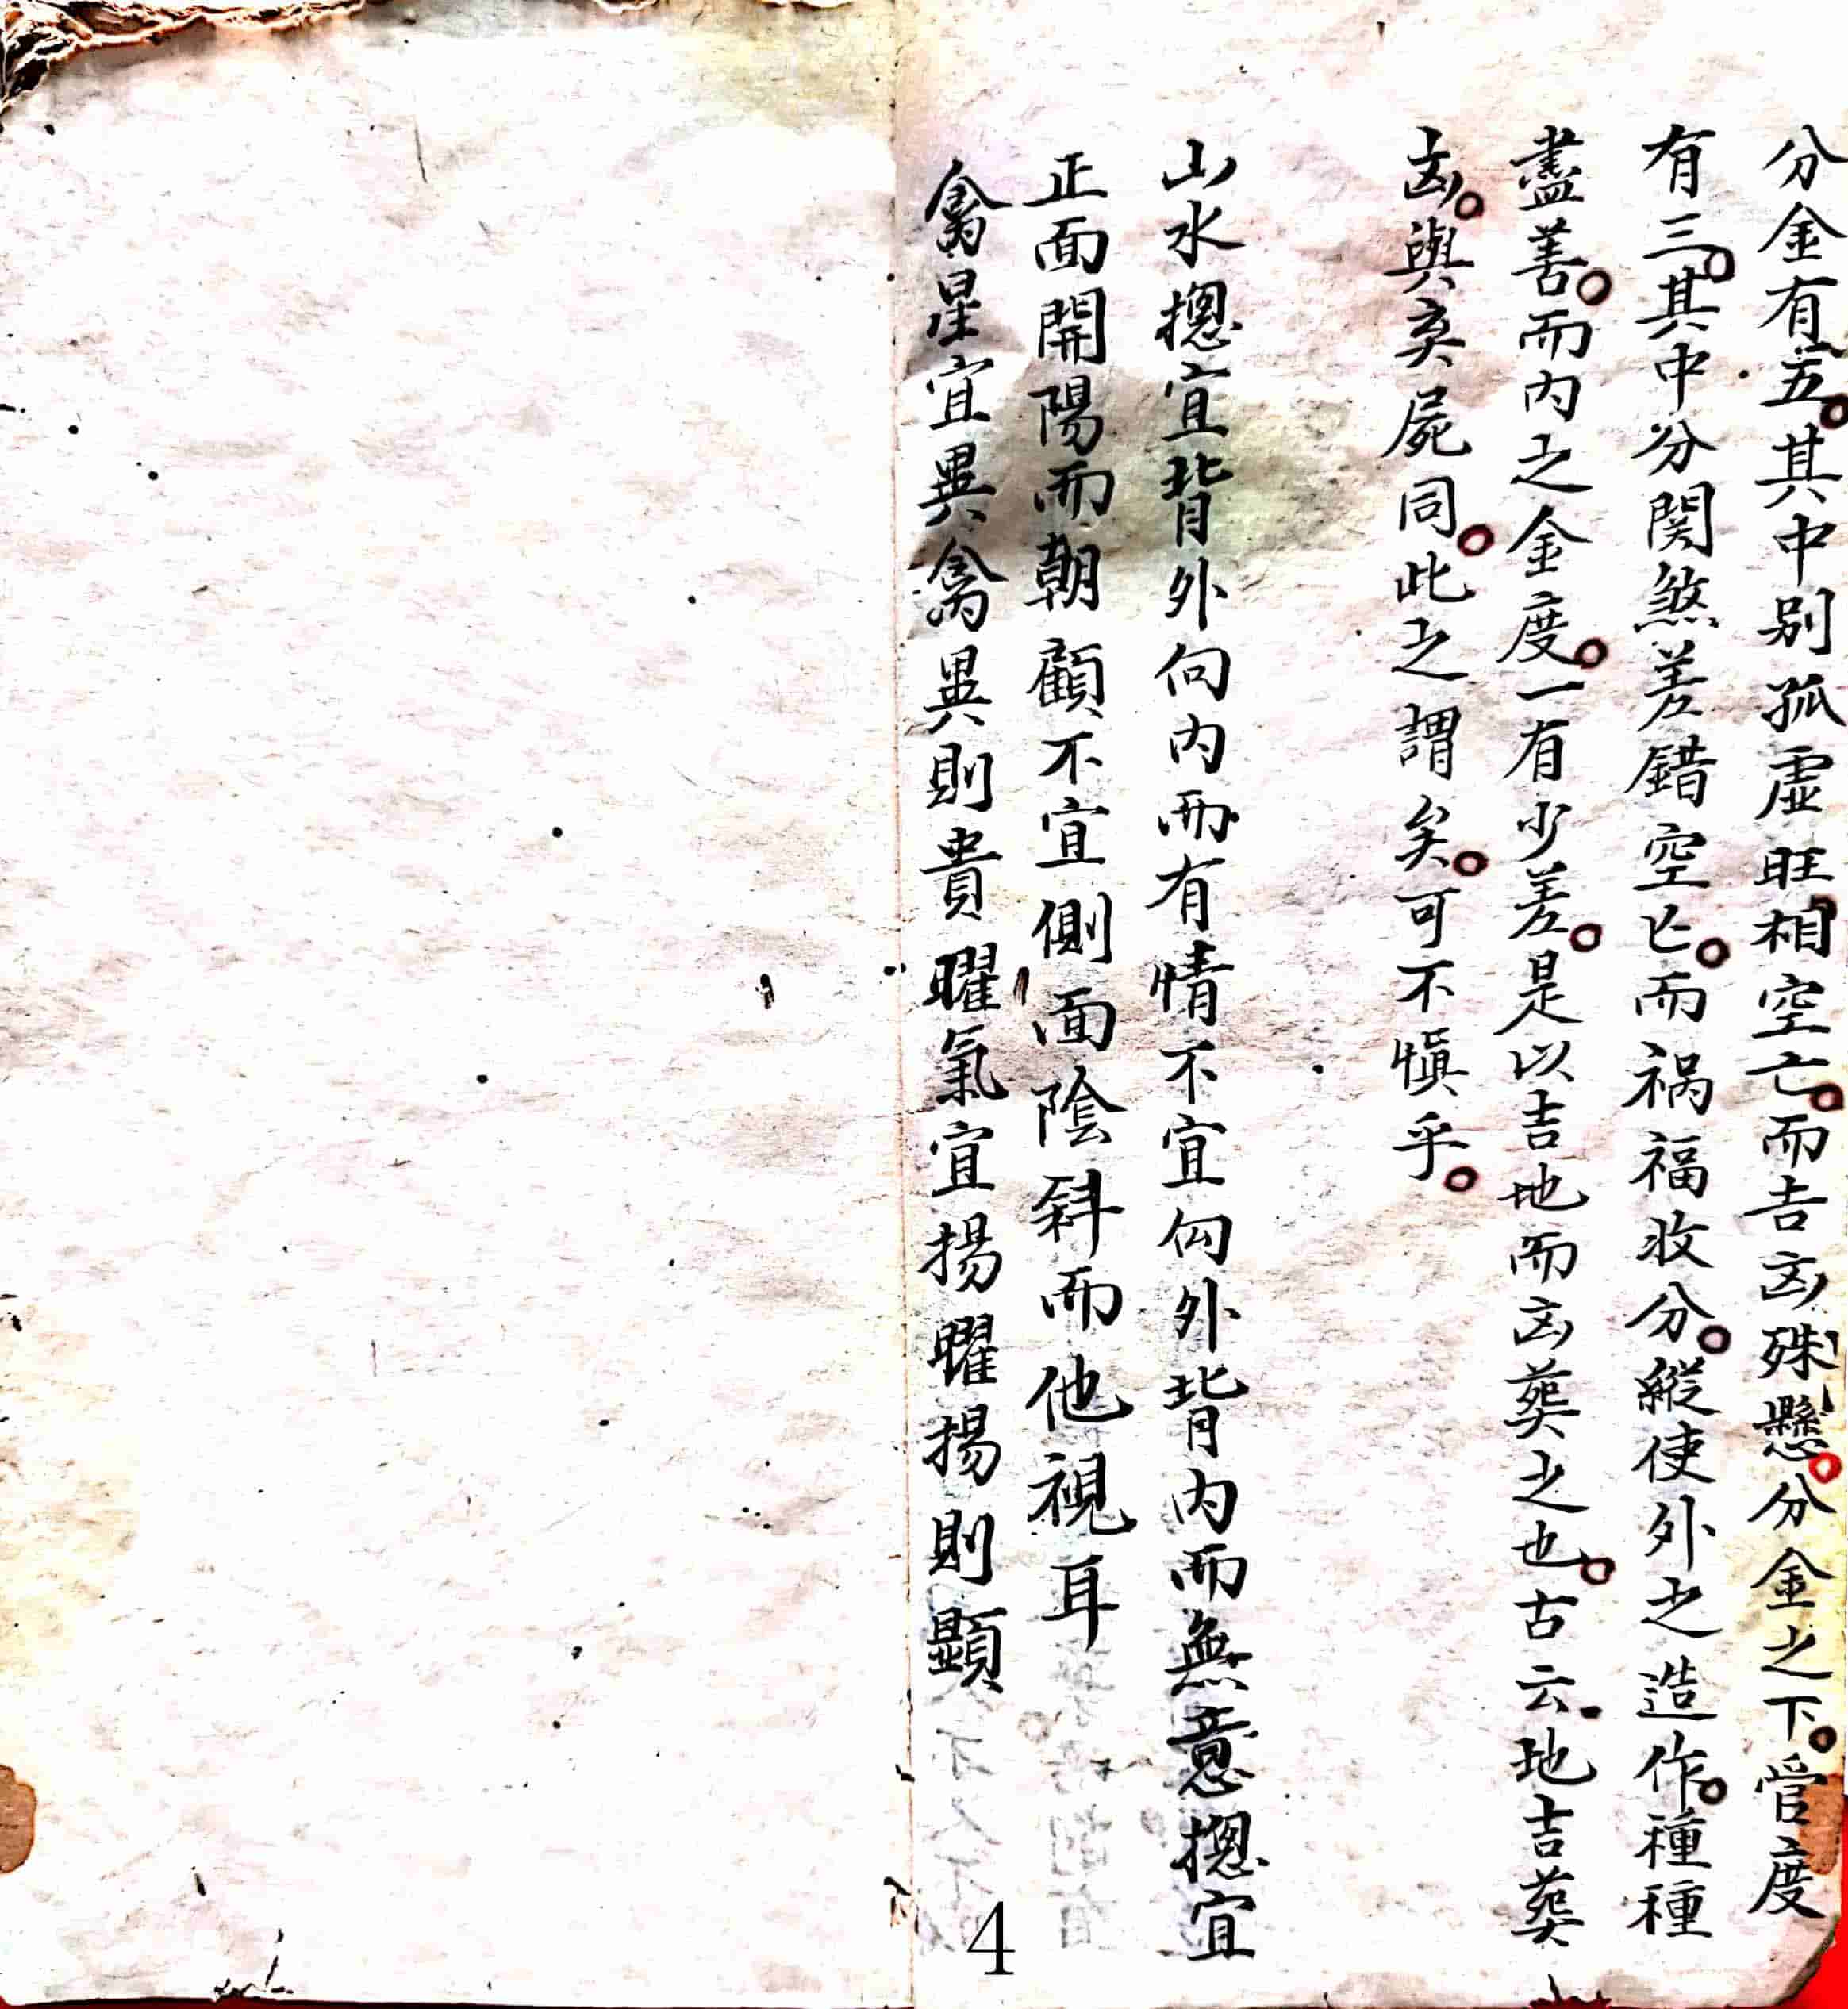 分金有五。其中别孤虛旺相空亡。而吉凶殊懸。分金之下。管度
有三。其中分関煞差錯空亡。而禍福收分。縱使外之造作。種種
盡善。而内之金度。一有少差。是以吉地而凶葬之也。古云地吉葬
凶。與弃屍同。此之謂矣。可不慎乎。
山水摠宜背外向内而有情不宜向外背内而無意摠宜
正面開陽而朝顧不宜側面陰斜而他視耳
禽星宜異禽異則貴曜氣宜揚曜揚則顯
4